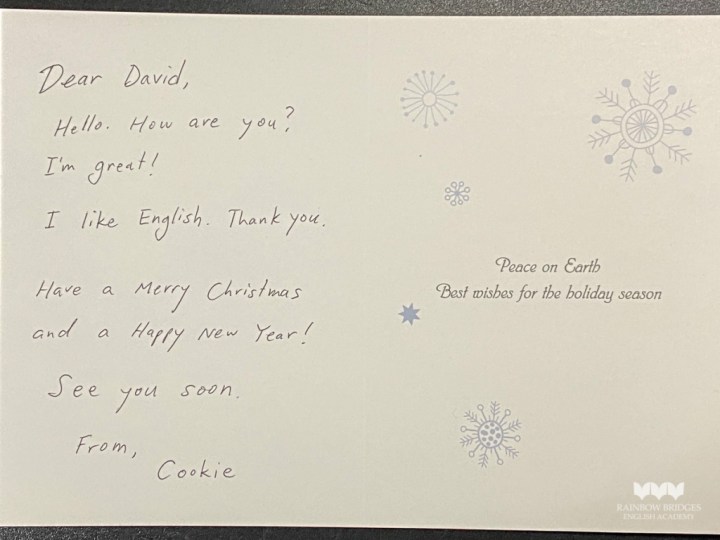 Dear David,
Hello. How are you?
I'm great!
I like English. Thank you.
Have a Merry Christmas
and a Happy New Year!
See you soon.
From,
Cookie
Peace on Earth
Best wishes for the holiday season
RAINBOW BRIDGES
ENGLISH ACADEMY